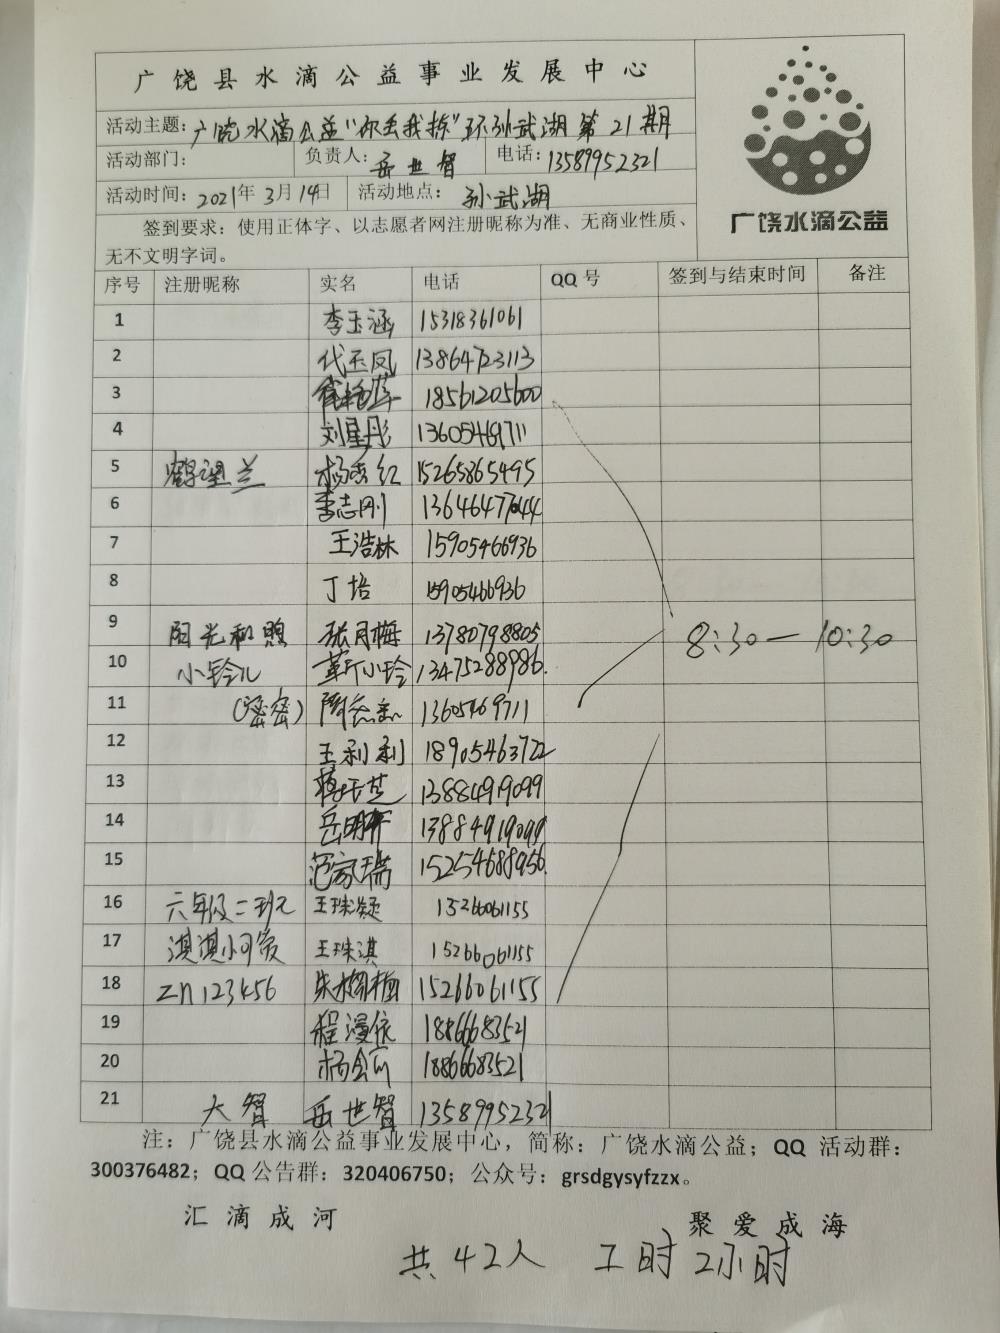 广饶县水滴公益事业发展中心
活动主题：广饶水滴公益"你丢我捡"环孙武湖第21期
活动部门： 负责人：岳世智 电话：13589952321
活动时间：2021年3月14日 活动地点：孙武湖
广饶水滴公益
签到要求：使用正体字、以志愿者网注册昵称为准、无商业性质、
无不文明字词。
序号 注册昵称 实名 电话 QQ号 签到与结束时间 备注
1 李玉涵 15318361061
2 代玉凤 13864723113
3 18561205600
4 刘星彤 13605469711
5 鹤望兰 杨秀红 15265865495
6 李志刚 13646477044
7 王浩林 15905466936
8 丁培 15905466936
9 阳光和煦 张月梅 13780798805 8:30—10:30
10 小铃儿 靳小玲 13475288986
11 (密密) 13605469711
12 王利利 18905463722
13 蒋玉芝 13884919099
14 岳明轩 13884919099
15 范家瑞 15254688956
16 六年级二班 王珠凝 15266061155
17 淇淇 王珠淇 15266061155
18 zn123456 朱梅梅 15266061155
19 程漫依 18866683521
20 杨会 18866683521
21 大智 岳世智 13589952321
注：广饶县水滴公益事业发展中心，简称：广饶水滴公益；QQ 活动群：
300376482；QQ公告群：320406750；公众号：grsdgysyfzzx。
汇滴成河 聚爱成海
共42人 工时2小时